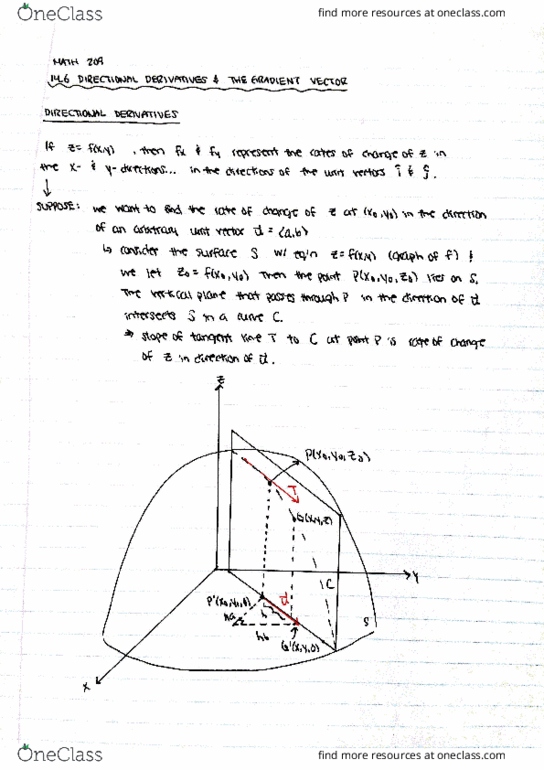 OneClass
find more resources at oneclass.com
MATH 209
14.6 DIRECTIONAL DERIVATIVES & THE GRADIENT VECTOR
DIRECTIONAL DERIVATIVES
If z= f(x,y) , then fx & fy represent the rates of change of z in
the x- & y-directions... in the directions of the unit vectors î & ĵ.
↓
SUPPOSE: we want to find the rate of change of z at (x₀,y₀) in the direction
of an arbitrary unit vector u⃗ = ⟨a,b⟩
↳ consider the surface S w/ eq'n z=f(x,y) (graph of f) &
we let z₀ = f(x₀,y₀) Then the point P(x₀,y₀,z₀) lies on S.
The vertical plane that passes through P in the direction of u⃗
intersects S in a curve C.
⇒ slope of tangent line T to C at point P is rate of change
of z in direction of u⃗.
z
P(x₀,y₀,z₀)
T
Q(x,y,z)
y
C
P'(x₀,y₀,0)
u⃗
ha
h
S
hb
Q'(x,y,0)
x
OneClass
find more resources at oneclass.com